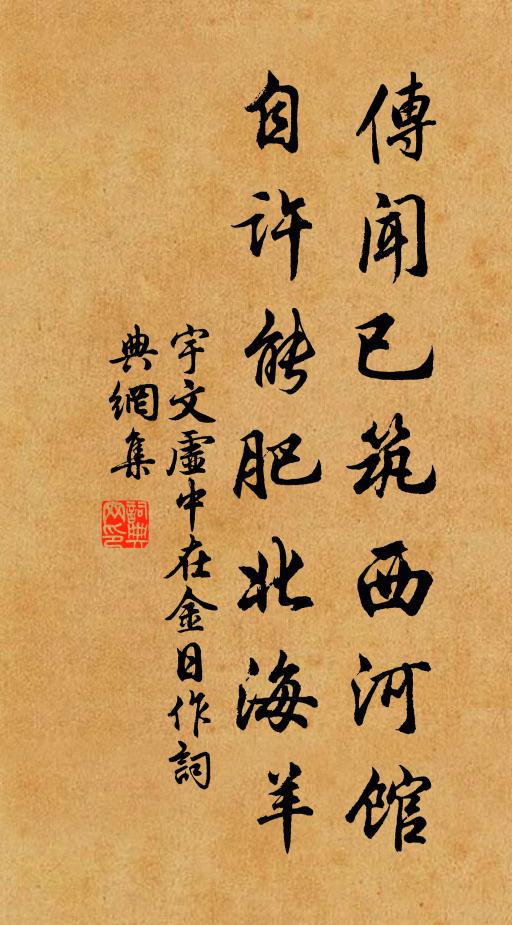 傳聞已筑西河館
自許能肥北海羊
宇文虛中在金日作詞
典網集
詞典網印